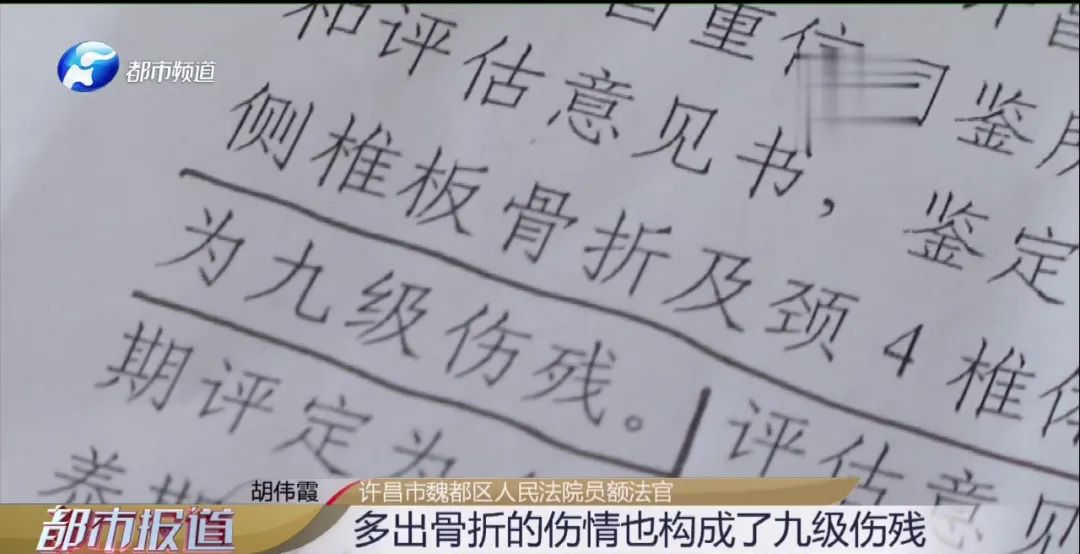 都市频道
和评估意见书，鉴定
侧椎板骨折及颈4椎体
为九级伤残。
评估意见
期评定为
养期
胡伟霞 许昌市魏都区人民法院员额法官
都市报道 多出骨折的伤情也构成了九级伤残